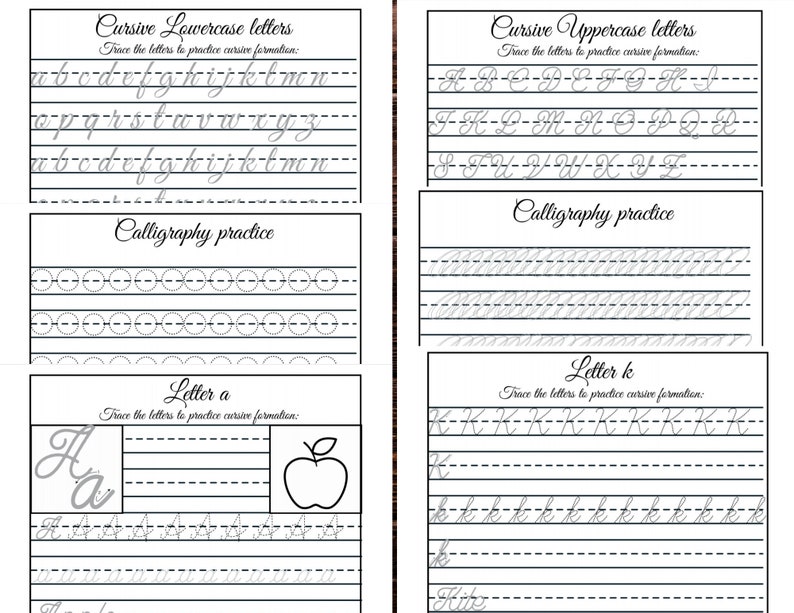 Cursive Lowercase letters
Trace the letters to practice cursive formation:
a b c d e f g h i j k l m n
o p q r s t u v w x y z
a b c d e f g h i j k l m n
o p q r s t
Calligraphy practice
Letter a
Trace the letters to practice cursive formation:
A
a
A A A A A A A A A A
a a a a a a a a a a a a
Apple
Cursive Uppercase letters
Trace the letters to practice cursive formation:
A B C D E F G H I
J K L M N O P Q R
S T U V W X Y Z
Calligraphy practice
Letter k
Trace the letters to practice cursive formation:
K K K K K K K K K K
K
k k k k k k k k k k k k k
k
Kite